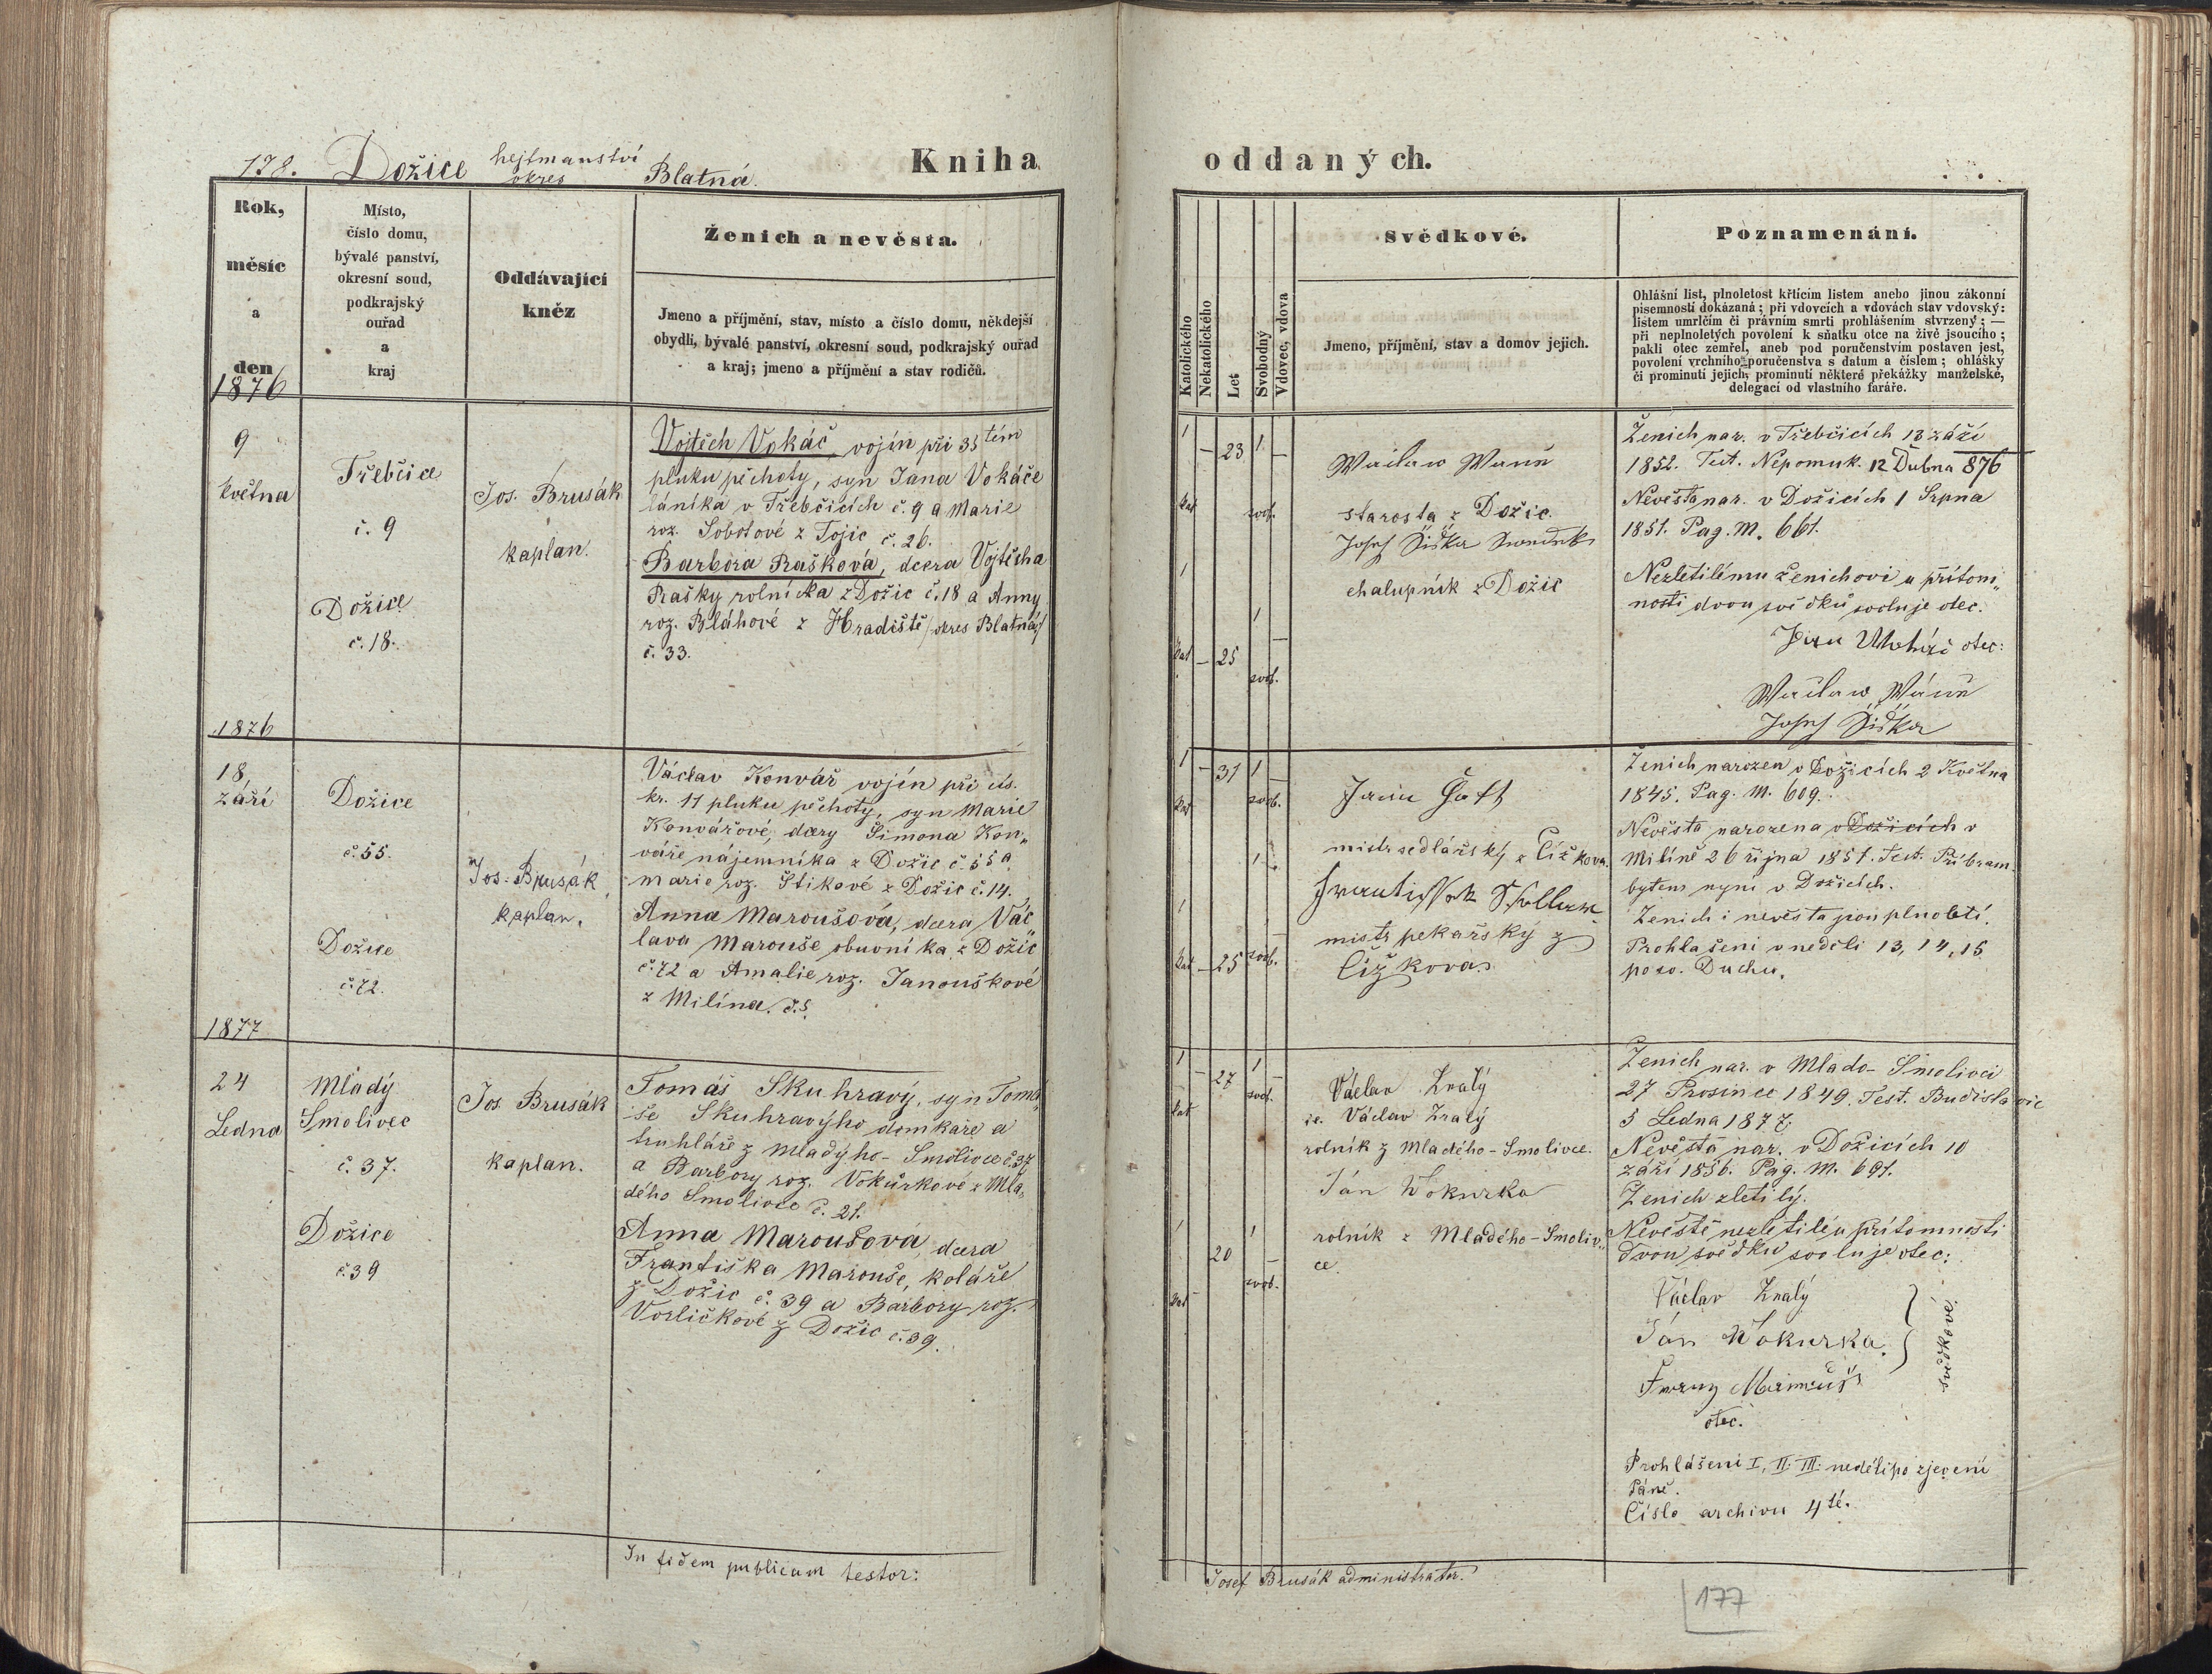 178. Dožice hejtmanství
okres Blatná.
Kniha
Rok,
měsíc
a
den
1876
Místo,
číslo domu,
bývalé panství,
okresní soud,
podkrajský
ouřad
a
kraj
Oddávající
kněz
Ženich a nevěsta.
Jmeno a příjmění, stav, místo a číslo domu, někdejší
obydlí, bývalé panství, okresní soud, podkrajský ouřad
a kraj; jmeno a příjmění a stav rodičů.
9
Května
Třebčice
č. 9
Dožice
č. 18.
Jos. Brusák
kaplan.
Vojtěch Vokáč, vojín při 35tém
pluku pěchoty, syn Jana Vokáče
láníka v Třebčicích č. 9 a Marie
roz. Sobotové z Tojic č. 26.
Barbora Prašková, dcera Vojtěcha
Prašky rolníka z Dožic č. 18 a Anny
roz. Bláhové z Hradiště /okres Blatná/
č. 33.
1876
18
září
Dožice
č. 55.
Dožice
č. 72.
Jos. Brusák
kaplan.
Václav Konvář vojín při cís.
kr. 11 pluku pěchoty, syn Marie
Konvářové, dcery Šimona Kon„
váře nájemníka z Dožic č. 55 a
Marie roz. Štikové z Dožic č. 14.
Anna Maroušová, dcera Vác„
lava Marouše obuvníka z Dožic
č. 72 a Amalie roz. Janouškové
z Milína. č. 5.
1877
24
Ledna
Mladý
Smolivec
č. 37.
Dožice
č. 39
Jos. Brusák
kaplan.
Tomáš Skuhravý, syn Tomá„
še Skuhravýho domkaře a
truhláře z Mladýho-Smolivce č. 37
a Barbory roz. Vokurkové z Mla„
dého Smolivce č. 21.
Anna Maroušová, dcera
Františka Marouše, koláře
z Dožic č. 39 a Barbory roz.
Vorličkové z Dožic č. 39.
In fidem publicam testor:
oddaných.
Katolického
Nekatolického
Let
Svobodný
Vdovec, vdova
Svědkové.
Jmeno, příjmění, stav a domov jejich.
Poznamenání.
Ohlášní list, plnoletost křtícím listem anebo jinou zákonní
písemností dokázaná; při vdovcích a vdovách stav vdovský:
listem umrlčím či právním smrti prohlášením stvrzený; —
při neplnoletých povolení k sňatku otce na živě jsoucího;
pakli otec zemřel, aneb pod poručenstvím postaven jest,
povolení vrchního poručenstva s datum a číslem; ohlášky
či prominutí jejich, prominutí některé překážky manželské,
delegací od vlastního faráře.
1 – 23 1 –
kat svob.
1 1
kat – 25 – svob.
Václaw
starosta z Dožic.
Josef Šiška
chalupník z Dožic
Ženich nar. v Třebčicích 13 září
1852. Test. Nepomuk. 12 Dubna 876
Nevěsta nar. v Dožicích 1 Srpna
1851. Pag. M. 661.
Nezletilému ženichovi u přítom„
nosti dvou svědků svoluje otec.
Jan otec:
Václaw
Josef Šiška
1 – 31 1 –
kat svob.
1 1
kat – 25 svob. –
mistr sedlářský z Čížkova.
mistr pekařský z
Čížkova.
Ženich narozen v Dožicích 2 Května
1845. Pag. M. 609.
Nevěsta narozena v Dožicích v
Milíně 26 října 1851. Test. Příbram.
bytem nyní v Dožicích.
Ženich i nevěsta jsou plnoletí.
Prohlašení v neděli 13, 14, 15
po sv. Duchu.
1 – 27 1 –
kat svob.
1 20 1 –
kat – svob.
Václav Zralý
ie. Václav Zralý
rolník z Mladého-Smolivce.
Ján Wokurka
rolník z Mladého-Smoliv„
ce
Ženich nar. v Mlado-Smolivci
27 Prosince 1849. Test. Budislavic
5 Ledna 1877.
Nevěsta nar. v Dožicích 10
září 1856. Pag. M. 691.
Ženich zletilý.
Nevěstě nezletilé u přítomnosti
dvou svědku svoluje otec:
Václav Zralý
Ján Wokurka.
svědkové.
otec.
Prohlášení I, II. III. neděli po zjevení
Páně.
Číslo archivu 4té.
Josef Brusák administrator.
177